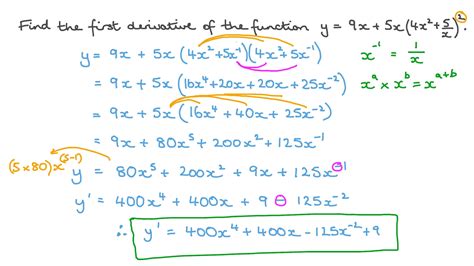 Find the first derivative of the function y = 9x + 5x(4x² + 5/x)².
y = 9x + 5x(4x² + 5x⁻¹)(4x² + 5x⁻¹)
x⁻¹ = 1/x
= 9x + 5x(16x⁴ + 20x + 20x + 25x⁻²)
xᵃ × xᵇ = xᵃ⁺ᵇ
= 9x + 5x(16x⁴ + 40x + 25x⁻²)
= 9x + 80x⁵ + 200x² + 125x⁻¹
(5×80)x⁽⁵⁻¹⁾
y = 80x⁵ + 200x² + 9x + 125x⁻¹
y' = 400x⁴ + 400x + 9 − 125x⁻²
∴ y' = 400x⁴ + 400x − 125x⁻² + 9